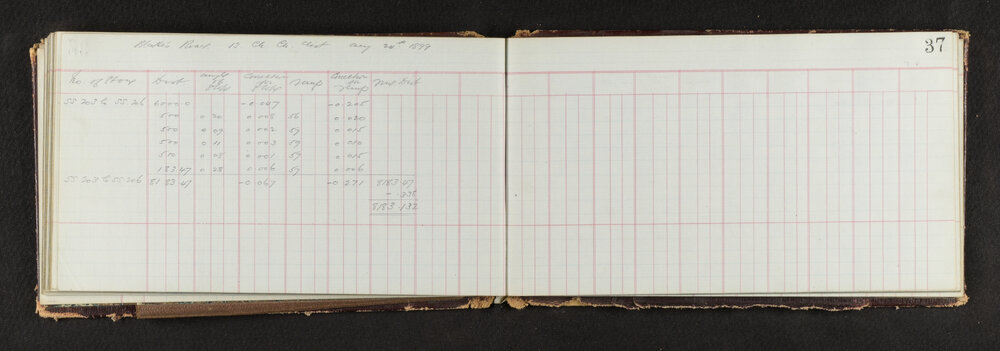 37
Road B. Ch. Ch. East Aug 24th 1899
No. of Dist angle of Slope Correction for Slope Temp Correction for Temp True Dist
SS 203 to SS 206 6000 0 -0 047 -0 205
500 0 20 0 008 56 0 020
500 0 09 0 002 59 0 015
500 0 11 0 003 59 0 010
500 0 05 0 001 59 0 015
183 47 0 28 0 006 59 0 006
SS 203 to SS 206 8183 47 -0 067 -0 271 8183.47
- .338
8183.132